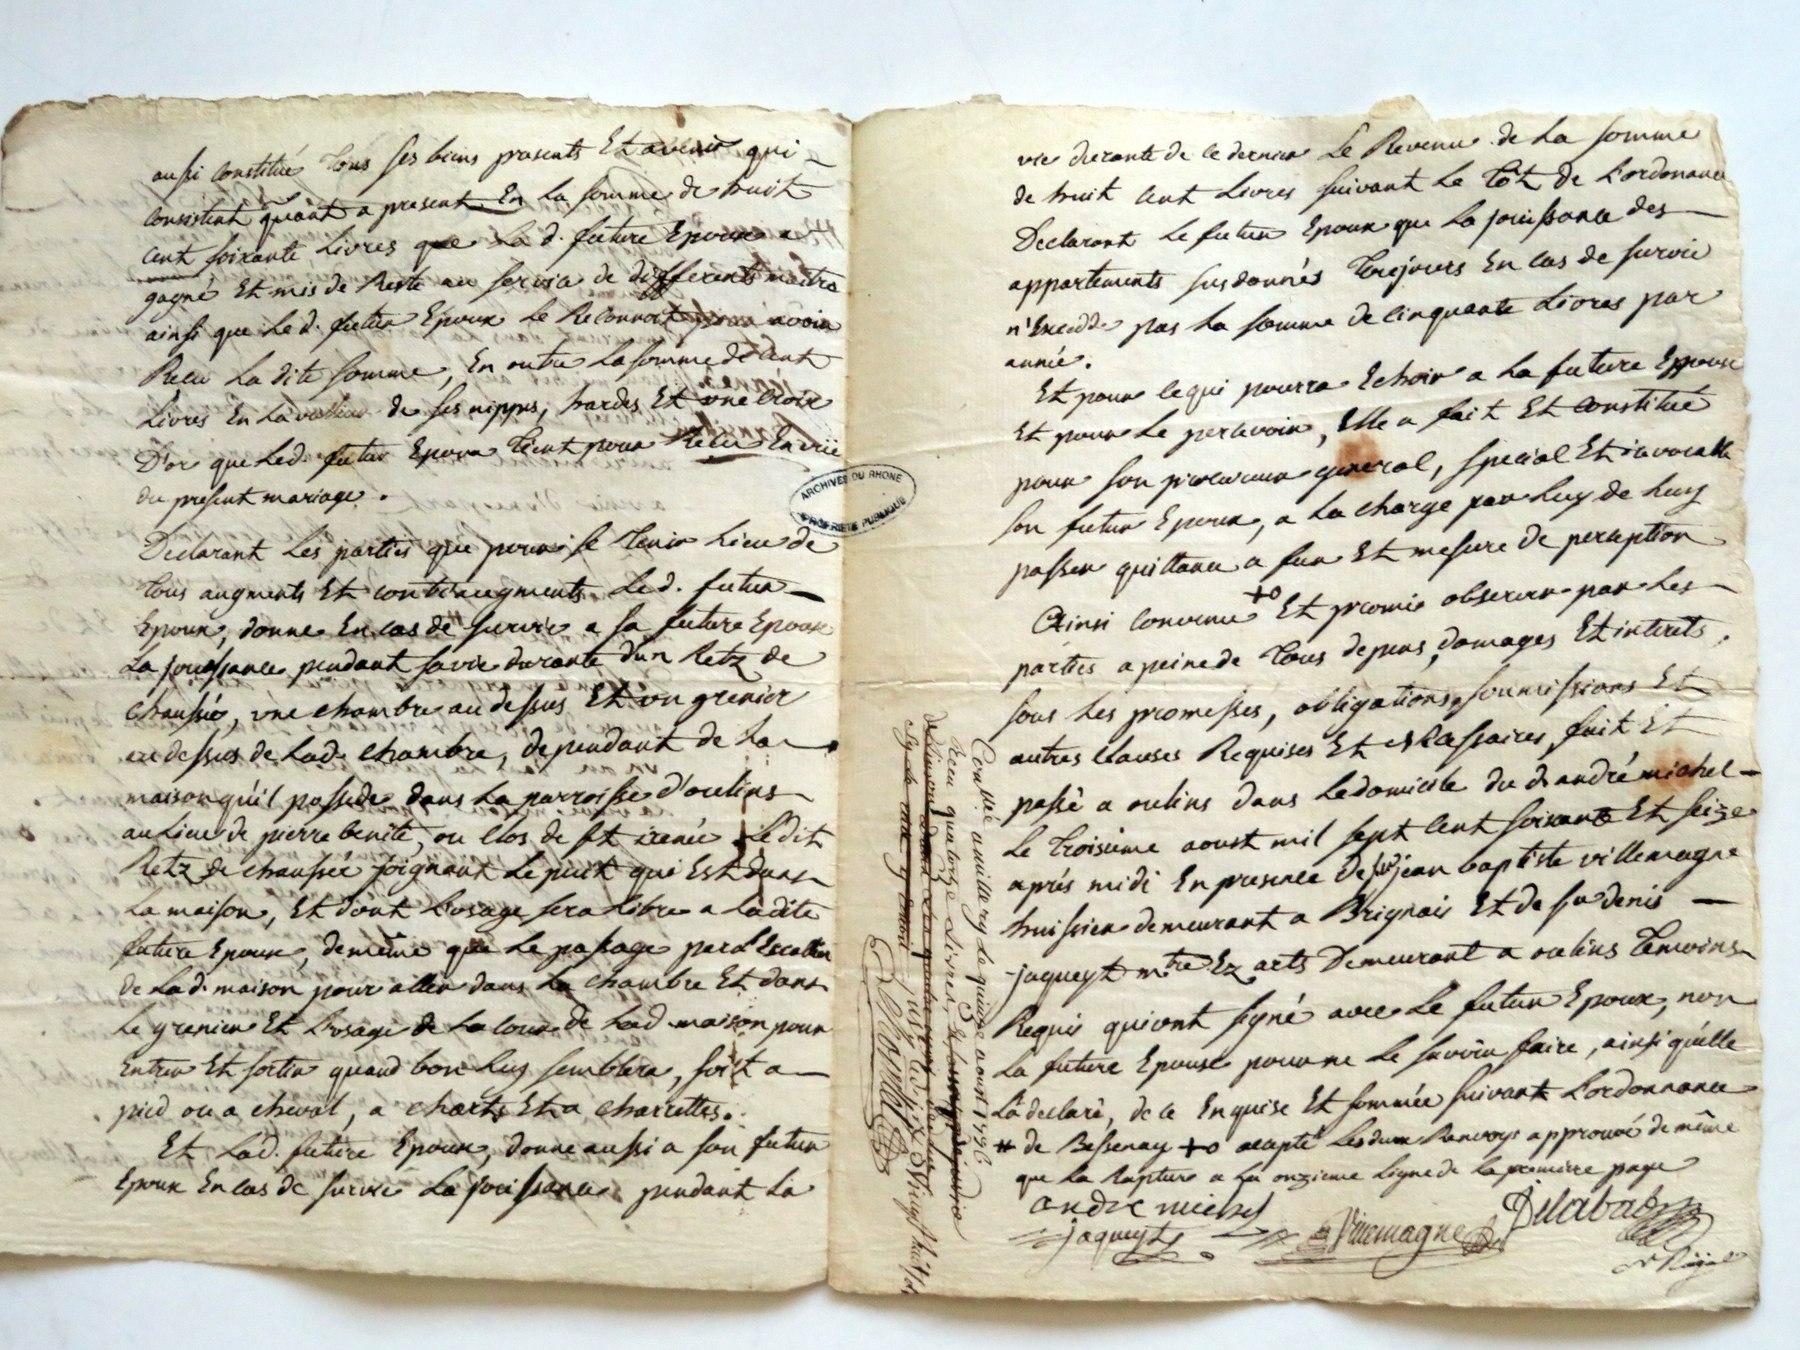 aussi constitué tous ses biens presents Et avenir qui
consistent quânt a present En la somme de huit
cent soixante Livres que La d. future Epouse a
gagné Et mis de Reste au servica de differents maitres
ainsi que Led. futur Epoux Le Reconnoit avoir
Recu La dite somme, En outre La somme de Cent
Livres En La valleur de ses nippes, hardes Et une Croix
D'or que Led. futur Epoux tient pour Recu En vüe
du present mariage.
Declarant Les parties que pour se tenir Lieu de
tous augments Et contreaugments Led. futur
Epoux, donne En cas de survie a sa future Epouse
La jouissance pendant sa vie durante d'un Retz de
chaussée, une chambre au dessus Et un grenier
au dessus de Lad. chambre, dependant de La
maison qu'il possede dans La parroisse d'oulins
au Lieu de pierre benite, ou Clos de st irenée Ledit
Retz de chaussée joignant Le puit qui Est dans
La maison, Et dont L'usage sera Libre a Ladite
future Epouse, de même que Le passage par L'Escallier
de Lad. maison pour aller dans La chambre Et dans
Le grenier Et L'usage de La Cour de Lad. maison pour
Entrer Et sortir quand bon Luy semblera, soit a
pied ou a cheval, a charts Et a charrettes.
Et Lad. future Epouse, donne aussi a son futur
Epoux En cas de survie La jouissance pendant La
ARCHIVES DU RHONE
PROPRIÉTÉ PUBLIQUE
vie durante de ce dernier Le Revenu de La somme
de huit Cent Livres suivant Le tôt de L'ordonance
Declarant Le futur Epoux que La jouissance des
appartements susdonnés toujours En cas de survie
n'Excedde pas La somme de cinquante Livres par
année.
Et pour ce qui pourra Echoir a La future Epouse
Et pour Le percevoir, Elle a fait Et constitué
pour son procureur general, special Et irrevocable
son futur Epoux, a La charge par Luy de Luy
passer quittance a fur Et mesure de perception
Ainsi Convenu +o Et promis observer par Les
parties a peine de tous depens, domages Et interets,
sous Les promesses, obligations, soumissions Et
autres Clauses Requises Et necessaires, fait Et
passé a oulins dans Le domicile du d. andré michel
Le troisieme aoust mil sept Cent soixante Et seize
aprés midi En presence De sr jean baptiste villemagne
huissier demeurant a Brignais Et de sr denis
jaqueyt mtre Ez arts Demeurant a oulins temoins
Requis qui ont signé avec Le futur Epoux, non
La future Epouse pour ne Le savoir faire, ainsi qu'Elle
L'a declaré, de ce Enquise Et sommée suivant L'ordonnance
# de Bessenay +o accepté Les deux Renvoys approuvé de même
que La Rapture a La onzieme Ligne de La premiere page
andre michel
jaqueyt
Villemagne
Delabal
Nre Royal
Con.lé a millery Le quinze aoust 1776
Recu quatorze Livres,